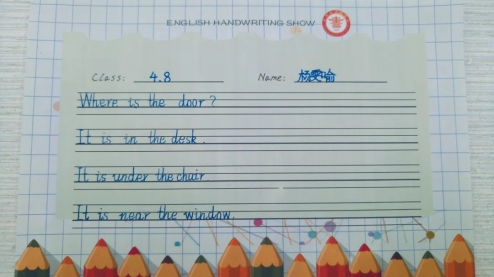 ENGLISH HANDWRITING SHOW
Class: 4.8 Name: 杨雯喻
Where is the door?
It is in the desk.
It is under the chair
It is near the window.